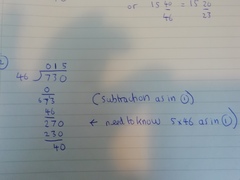 or 15 40/46 = 15 20/23
2)
015
46 ) 730
0
73 (subtraction as in ①)
46
270 ← need to know 5x46 as in ①)
230
40